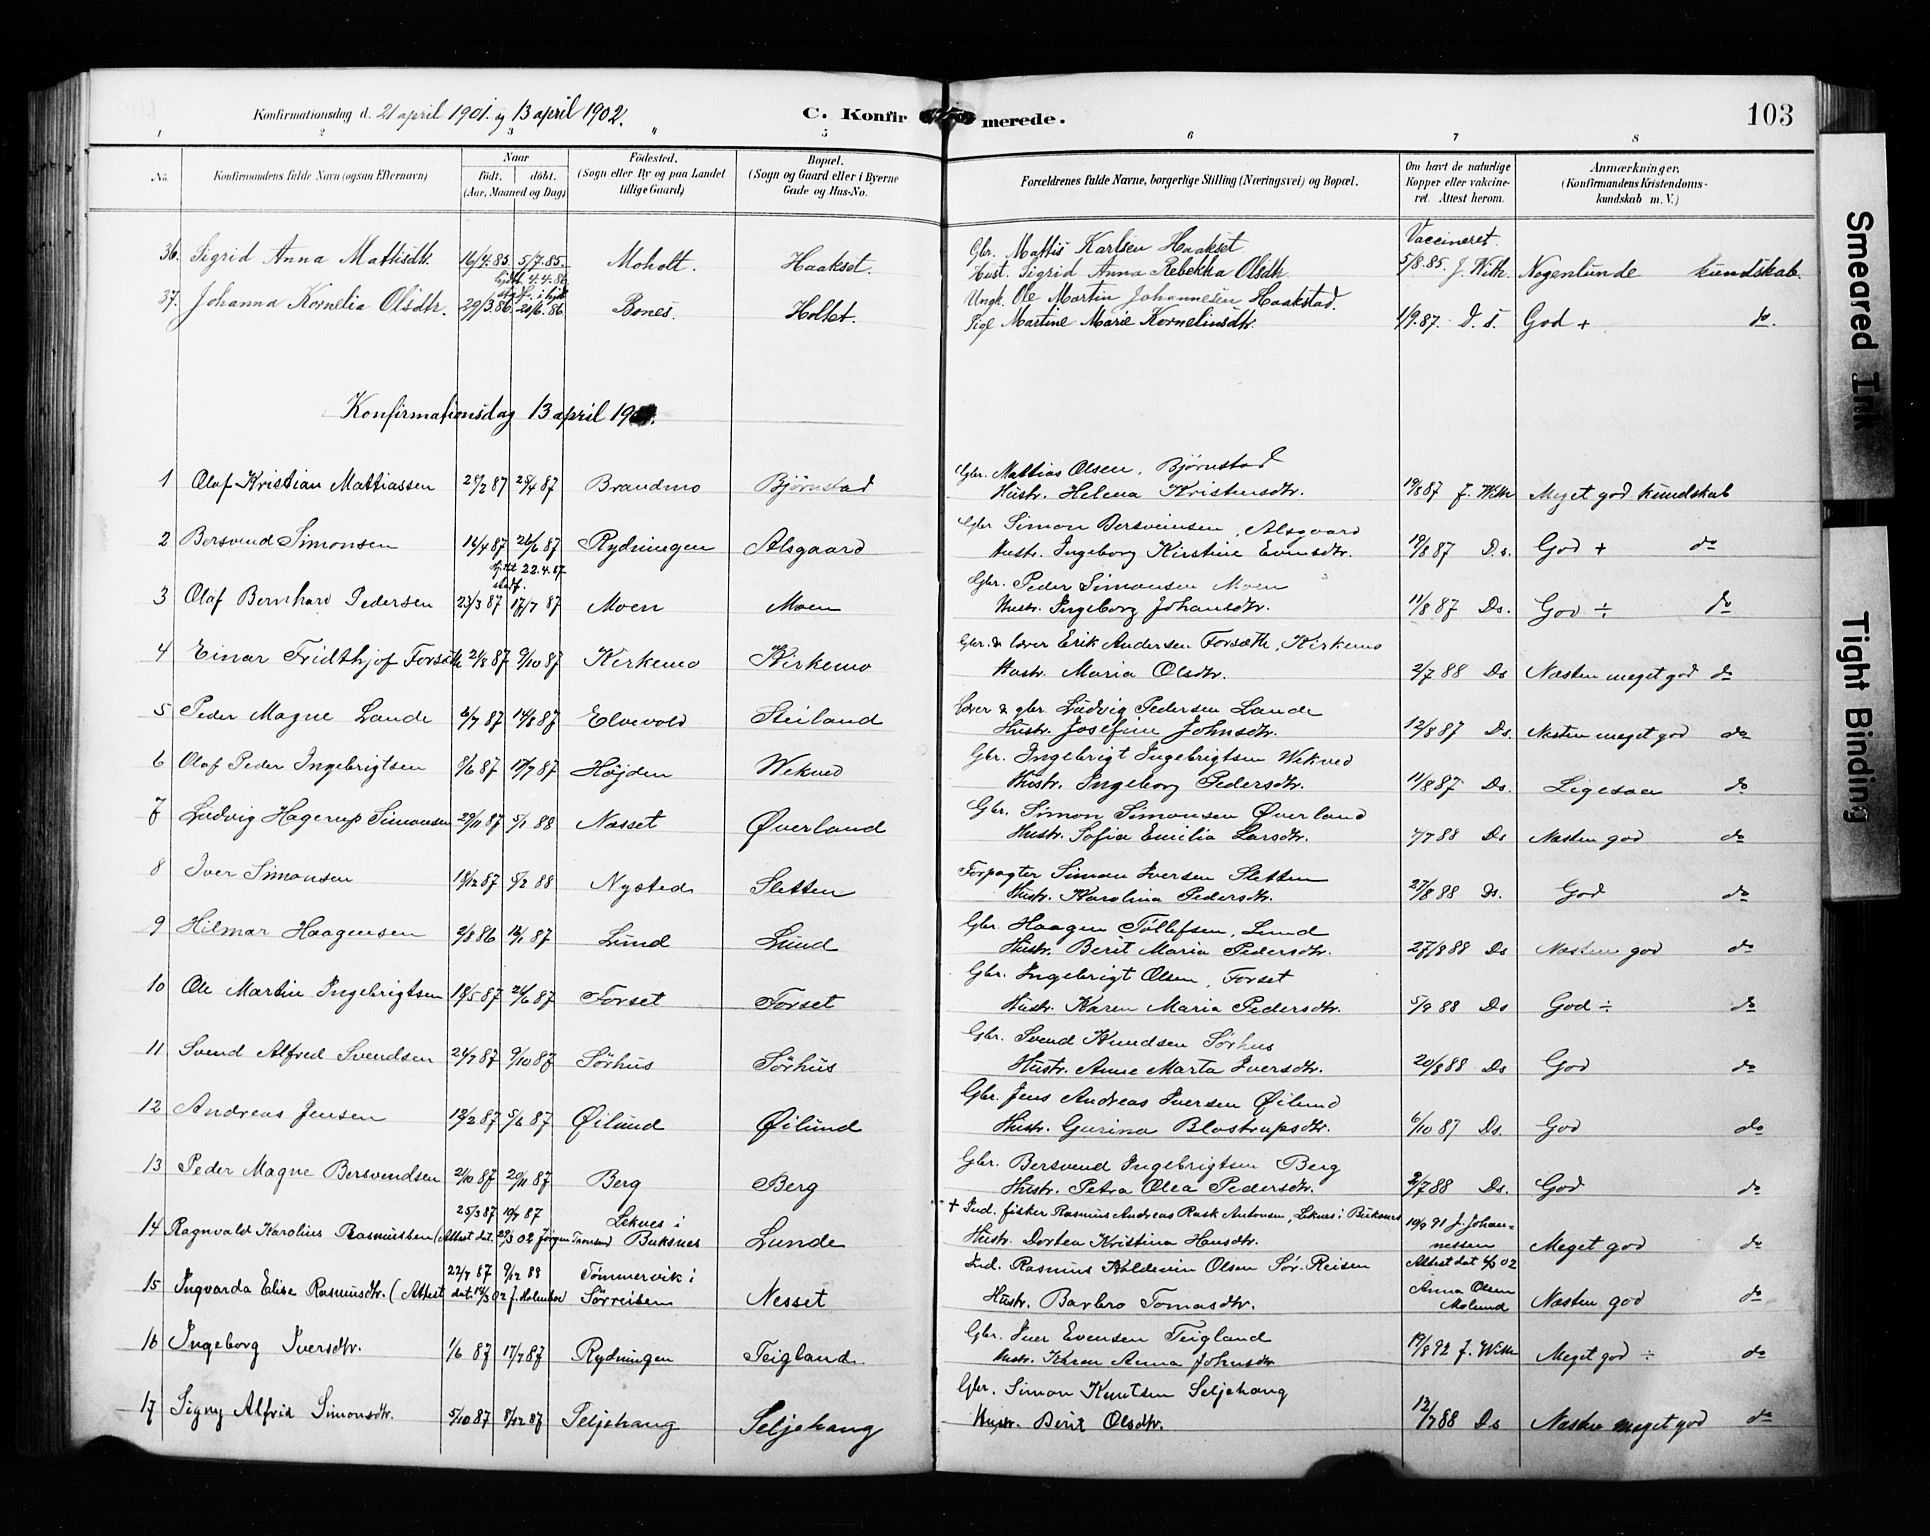 Konfirmationsdag d. 21 april 1901. og 13 april 1902. C. Konfirmerede. 103
1 2 3 " 5 6 7 8
No. Konfirmandens fulde Navn (ogsaa Efternavn) Naar født. døbt. (Aar, Maaned og Dag) Fødested. (Sogn eller By og paa Landet tillige Gaard) Bopæl. (Sogn og Gaard eller i Byerne Gade og Hus-No. Forældrenes fulde Navne, borgerlige Stilling (Næringsvei) og Bopæl. Om havt de naturlige Kopper eller vakcineret. Attest herom. Anmærkninger. (Konfirmandens Kristendomskundskab m. V.)
Vaccineret.
36. Sigrid Anna Mattisdtr. 16/4.85. 5/7.85. Moholt. Haakset. Gbr. Mattis Karlsen Haakset
Hust. Sigrid Anna Rebekka Olsdtr. 5/8.85. J. With. Nogenlunde kundskab.
hjdbt. 4.4.86 stadf. i kirk
37. Johanna Kornelia Olsdtr. 29/3.86. 20/6.86 Bones. Holtet. Ungk. Ole Martin Johannesen Haakstad.
Pige Martine Marie Kornelinsdtr. 1/9.87. D. S. God + do.
Konfirmationsdag 13 april
1 Olaf Kristian Mattiassen 28/2 87 25/4 87 Brandmo Bjørnstad Gbr. Mattias Olsen, Bjørnstad
Hustr. Helena Kristensdtr. 19/8 87 J. With Meget god kundskab
2 Bersvend Simonsen 14/4 87 26/6 87 Rydningen Alsgaard Gbr Simon Bersveinsen, Alsgaard
Hustr. Ingeborg Kirstine Evensdtr. 19/8 87 D. s. God + do
hj.dt 22.4.87 stadf.
3 Olaf Bernhard Pedersen 23/3 87 17/7 87 Moen Moen Gbr. Peder Simonsen Moen
Hustr. Ingeborg Johansdtr. 11/8 87 Ds. God ÷ do
4 Einar Fridthjof Forsæth 24/8 87 9/10 87 Kirkemo Kirkemo Gbr. & lærer Erik Andersen Forsæth, Kirkemo
Hustr. Maria Olsdtr. 2/7 88 Ds Næsten meget god do
5 Peder Magne Lande 6/7 87 14/8 87 Elvevold Steiland Lærer & gbr. Ludvig Pedersen Lande
Hustr. Josefine Johnsdtr. 12/8 87 Ds. Næsten meget god do
6 Olaf Peder Ingebrigtsen 8/6 87 17/7 87 Højden Wekved Gbr. Ingebrigt Ingebrigtsen Wekved
Hustr. Ingeborg Pedersdtr. 11/8 87 Ds. Ligesaa do
7 Ludvig Hagerup Simonsen 29/11 87 5/1 88 Næsset Øverland Gbr. Simon Simonsen Øverland
Hustr. Sofia Emilia Larsdtr. 7/7 88 Ds Næsten god do
8 Iver Simonsen 18/12 87 5/2 88 Nysted Sletten Forpagter Simon Iversen Sletten
Hustr. Karolina Pedersdtr. 27/8 88 Ds. God do
9 Hilmar Haagensen 2/8 86 14/1 87 Lund Lund Gbr. Haagen Tollefsen, Lund
Hustr. Berit Maria Pedersdtr. 27/8 88 Ds Næsten god do
10 Ole Martin Ingebrigtsen 18/5 87 26/6 87 Forset Forset Gbr. Ingebrigt Olsen, Forset
Hustr. Karen Maria Pedersdtr. 5/9 88 Ds God ÷ do
11 Svend Alfred Svendsen 24/7 87 9/10 87 Sørhus Sørhus Gbr. Svend Knudsen Sørhus
Hustr. Anne Marta Iversdtr. 20/8 88 Ds God do
12 Andreas Jensen 12/2 87 5/6 87 Øilund Øilund Gbr. Jens Andreas Iversen Øilund
Hustr. Gurina Blostrupsdtr. 6/10 87 Ds. God do
13 Peder Magne Bersvendsen 2/10 87 20/11 87 Berg Berg Gbr. Bersvend Ingebrigtsen Berg
Hustr. Petra Olea Pedersdtr. 2/7 88 Ds. God do
14 Ragnvald Karolius Rasmussen (Attest dat. 29/3 02 Jørgen Tromsed) 25/3 87 10/7 87 Leknes i Buksnes Lunde + Ind. fisker Rasmus Andreas Rask Antonsen, Leknes i Buksnes
Hustr. Dortea Kristina Hansdtr. 10/9 91 J. Johannessen Meget god do
15 Ingvarda Elise Rasmusdtr. (Attest dat. 14/3 02 J. Holmboe) 22/7 87 9/12 88 Tømmervik i Sørreisen Nesset Ind. Rasmus Koldevin Olsen Sør-Reisen
Hustr. Barbro Tomasdtr. Attest dat 4/3 02 Anna Olsen Molund Næsten god do
16 Ingeborg Iversdtr. 1/6 87 17/7 87 Rydningen Teigland Gbr. Iver Evensen Teigland
Hustr. Karen Anna Johnsdtr 19/8 92 J. With Meget god ÷ do
17 Signy Alfrid Simonsdtr. 5/10 87 8/12 87 Seljehaug Seljehaug Gbr. Simon Knutsen Seljehaug
Hustr. Berit Olsdtr. 12/7 88 Ds Næsten meget god do
Smeared Ink
Tight Binding